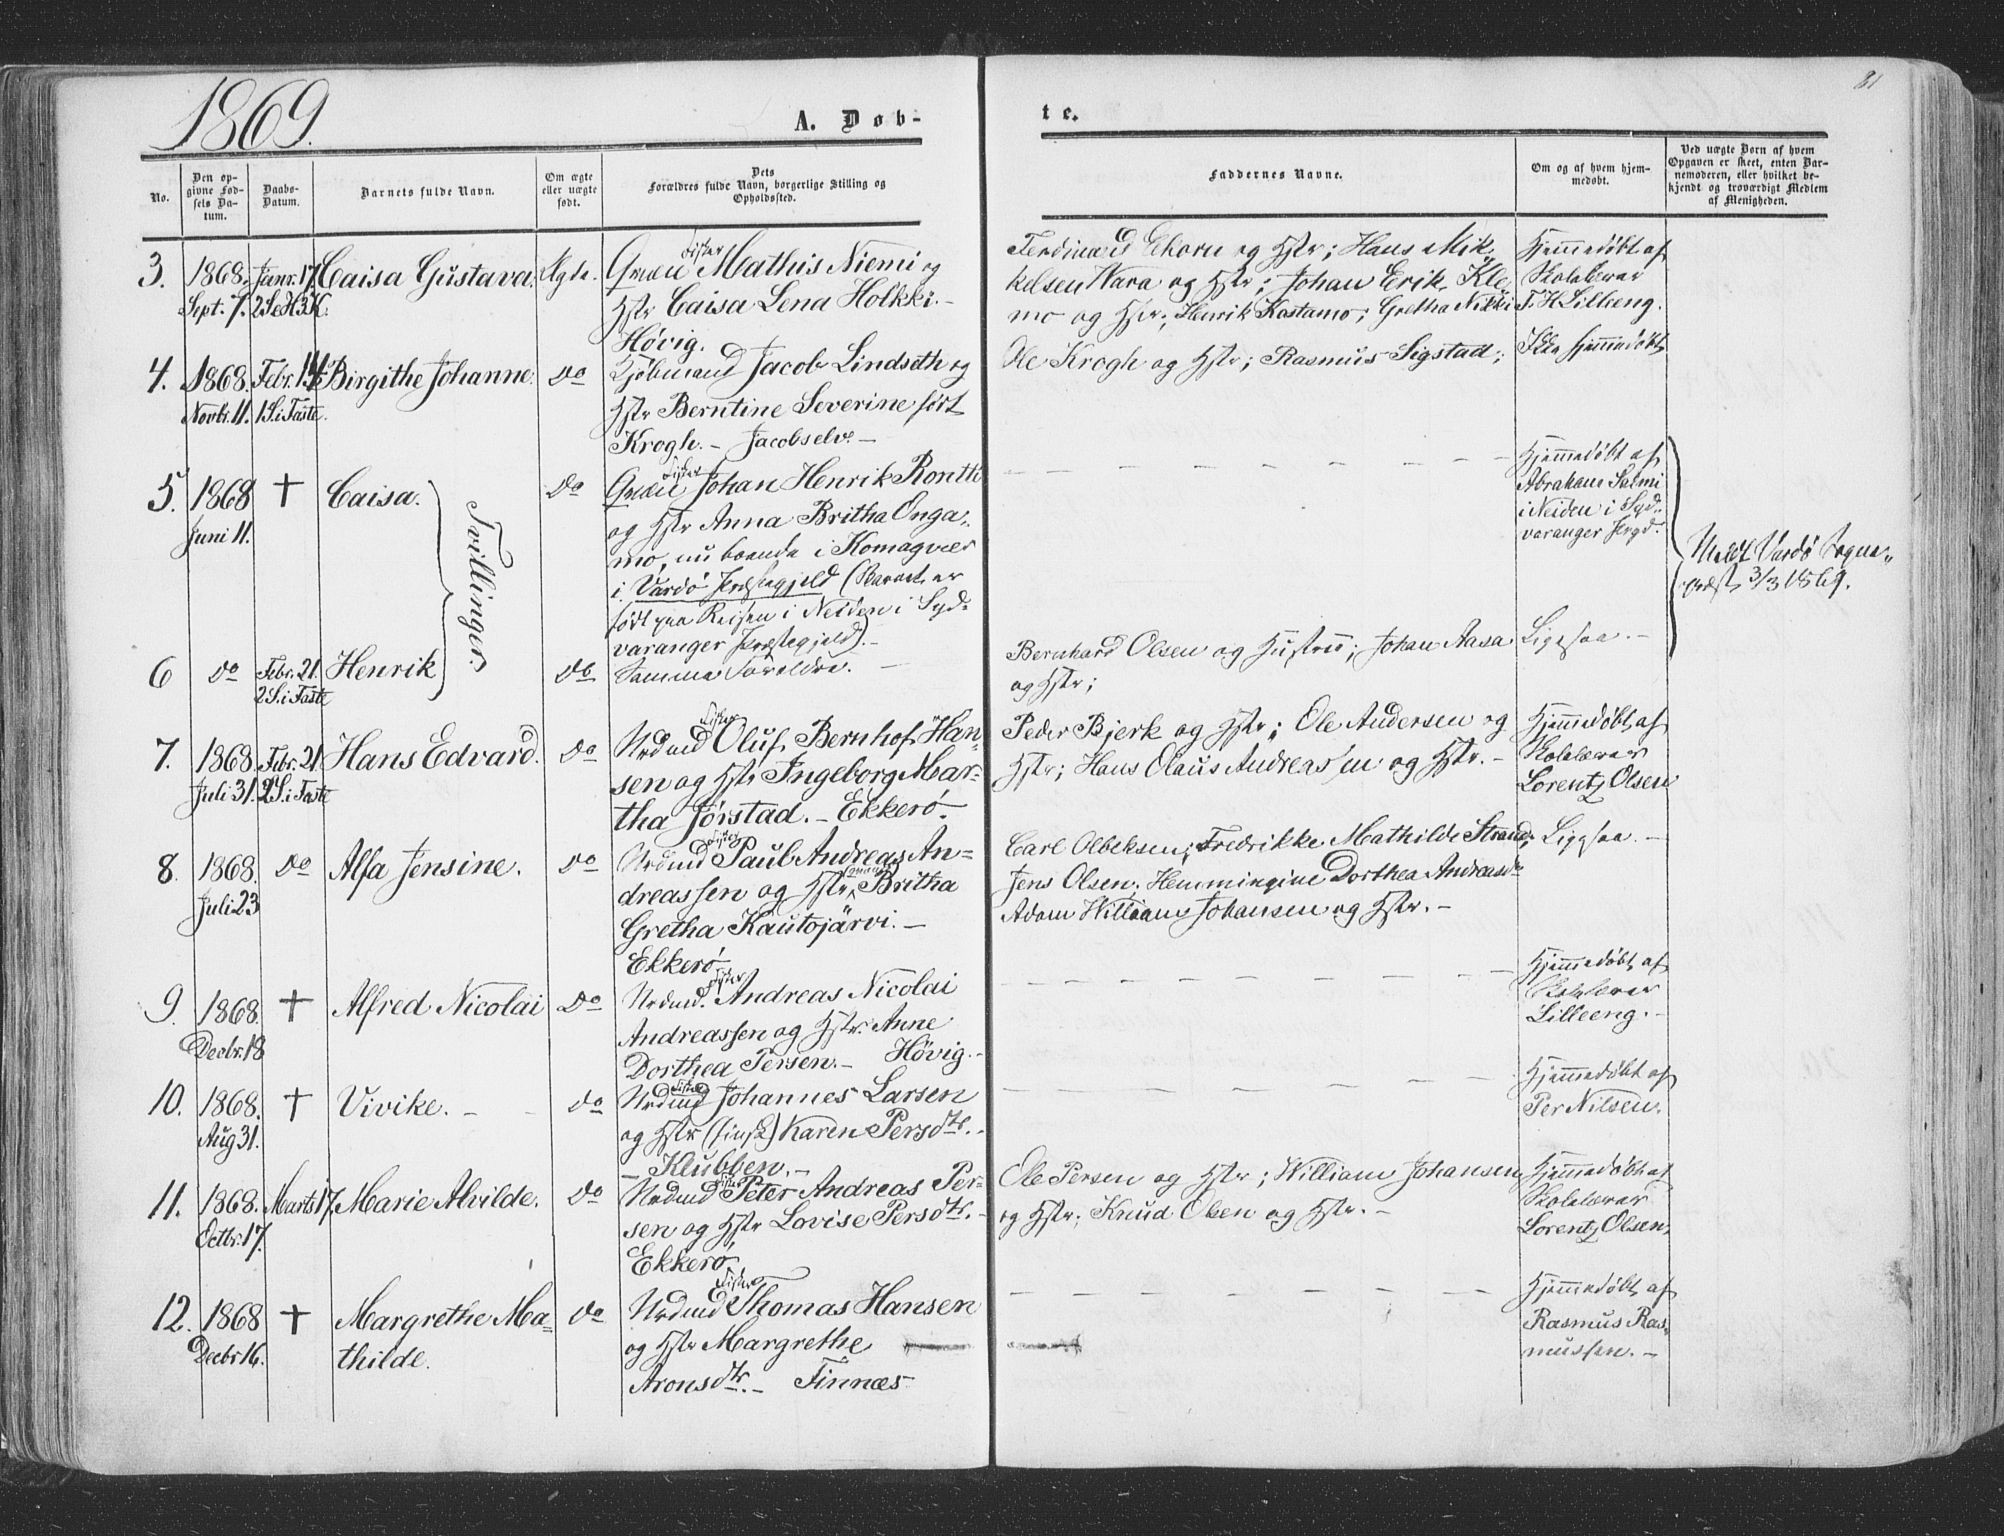 1869.
A. Døb-
te.
81
No.
Den op-
givne Fød-
sels Da-
tum.
Daabs-
Datum.
Barnets fulde Navn.
Om ægte
eller uægte
født.
Dets
Forældres fulde Navn, borgerlige Stilling og
Opholdssted.
Faddernes Navne.
Om og af hvem hjem-
medøbt.
Ved uægte Børn af hvem
Opgaven er skeet, enten Bar-
nemoderen, eller hvilket be-
kjendt og troværdigt Medlem
af Menigheden.
3. 1868. Janr. 17. Caisa Gustava. Ægte.
Sept. 7. 2 S. e. H. 3 K.
Qvæn Fisker Mathis Niemi og
Hstr Caisa Lena Holkki. -
Høvig.
Ferdinand Ekorn og Hstr; Hans Mik-
kelsen Wara og Hstr; Johan Erik Kle
mo og Hstr; Henrik Kostamo; Gretha Nikki
Hjemmedøbt af
Skolelærer
F. H. Lilleeng.
4. 1868. Febr. 14. Birgithe Johanne. do
Novbr. 11. 1 S. i Faste.
Kjøbmand Jacob Lindseth og
Hstr Berntine Severine født
Krogh. - Jacobselv. -
Ole Krogh og Hstr; Rasmus Sigstad;
Ikke hjemmedøbt
5. 1868 † Caisa. do
Juni 11.
Tvillinger.
Qvæn Fisker Johan Henrik Rontti
og Hstr Anna Britha Onga-
mo, nu boende i Komagvær
i Vardö Præstegjeld (Barnet er
født paa Reisen i Neiden i Syd-
varanger Præstegjeld). -
Hjemmedøbt af
Abraham Salmi
i Neiden i Syd-
varanger Prgd.
Meldt Vardö Sogne-
præst 3/3 1869.
6 do Febr. 21. Henrik do
2 S. i Faste
Samme Forældre. -
Bernhard Olsen og Hustru; Johan Aasa
og Hstr;
Ligesaa. -
7. 1868. Febr. 21. Hans Edvard. do
Juli 31. 2 S. i Faste
Nrdmd Fisker Oluf Bernhof Han-
sen og Hstr Ingeborg Mar-
tha Jörstad. - Ekkerö.
Peder Bjerk og Hstr; Ole Andersen og
Hstr; Hans Olaus Andreas's'n og Hstr. -
Hjemmedøbt af
Skolelærer
Lorentz Olsen
8. 1868. do Alfa Jensine. do
Juli 23
Nrdmd Fisker Paul Andreas An-
dreassen og Hstr (qvænsk) Britha
Gretha Kautojärvi. -
Ekkerö
Carl Olbeksen; Fredrikke Mathilde Strand;
Jens Olsen; Hemmingine Dorthea Andreasdr
Adam William Johansen og Hstr. -
Ligesaa. -
9. 1868. † Alfred Nicolai do
Decbr. 18
Nrdmd. Fisker Andreas Nicolai
Andreassen og Hstr. Anne
Dorthea Persen. - Høvig. -
Hjemmedøbt af
Skolelærer
Lilleeng. -
10. 1868. † Vivike. - do
Aug 31.
Nrdmd Fisker Johannes Larsen
og Hstr (finsk) Karen Persdtr. -
- Klubben. -
Hjemmedøbt af
Per Nilsen.
11. 1868. Marts 17. Marie Alvilde. do
Octbr. 17.
Nrdmd Fisker Peter Andreas Per-
sen og Hstr Lovise Persdtr. -
Ekkerö
Ole Persen og Hstr; William Johansen
og Hstr; Knud Olsen og Hstr. -
Hjemmedøbt af
Skolelærer
Lorentz Olsen,
12. 1868 † Margrethe Ma- do
Decbr 16.
thilde.
Nrdmd Fisker Thomas Hansen
og Hstr Margrethe
Aronsdtr. - Finnæs
Hjemmedøbt af
Rasmus Ras-
mussen. -